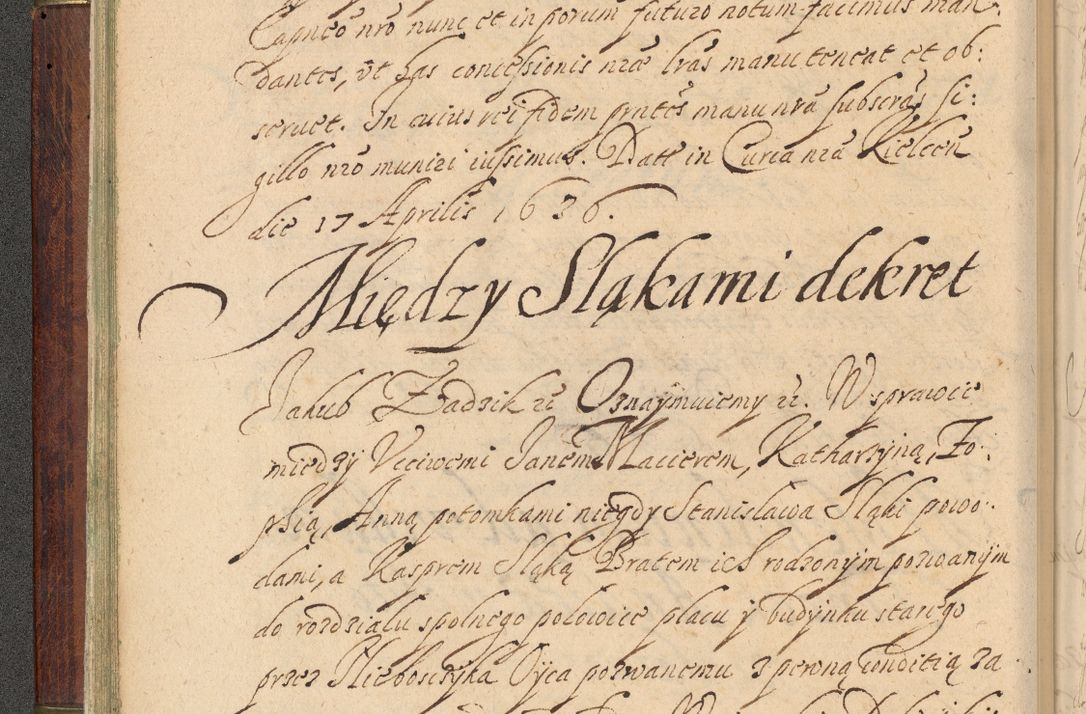 Capneõ nrõ nunc et in porum futuro notum facimus man:
dantes, ut has concessionis nrae lrãs manu teneat et ob:
seruet. In cuius rei fidem prñtes manu nrã subscrãs si:
gillo nrõ muniri iussimus. Datt in Curia nrã Kielcen
die 17 Aprilis 1636.
Między Sląkami dekret
Jakub Zadzik ẽt Oznaymuiemy ẽt. W sprawie
między Vcciwemi Janem Macierem, Katharzyną, Zo:
phią, Anną potomkami niegdy Stanisława Sląki powo:
dami, a Kasprem Sląką Bratem ich rodzonym pozwanym
do rozdziału spolnego połowice placu y budynku starego
przez Nieboszczyka Oyca pozwanemu z pewną conditią za